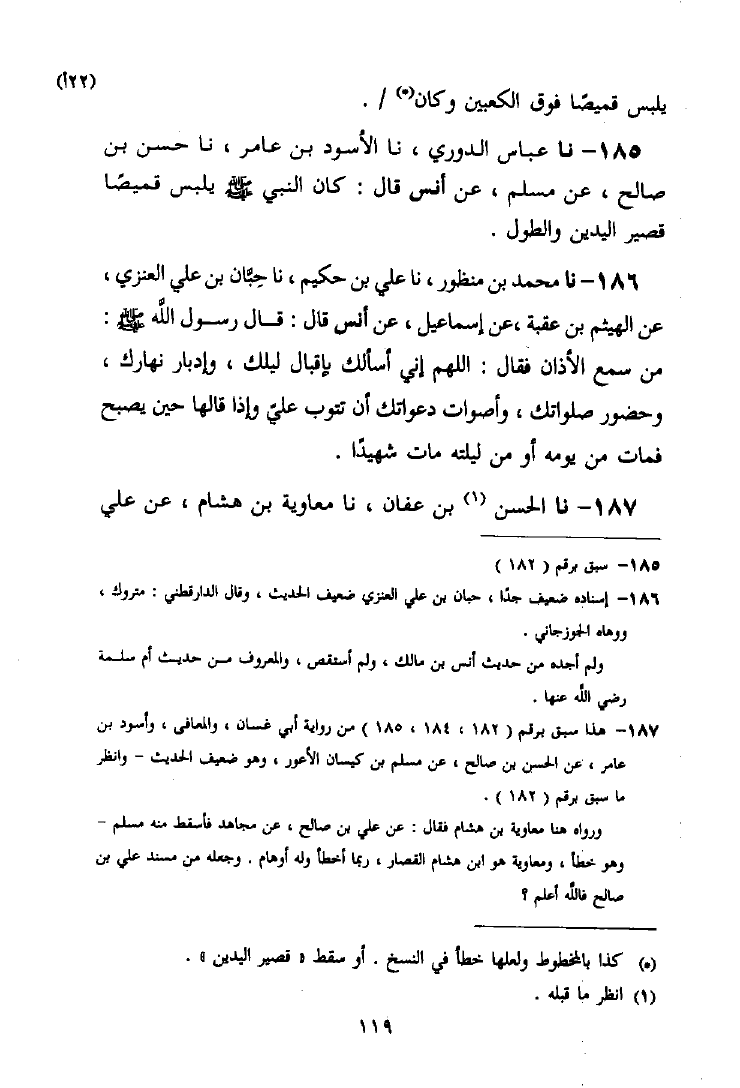 (٢٢أ)
يلبس قميصًا فوق الكعبين وكان(*) / .
١٨٥- نا عباس الدوري ، نا الأسود بن عامر ، نا حسن بن
صالح ، عن مسلم ، عن أنس قال : كان النبي ﷺ يلبس قميصًا
قصير اليدين والطول .
١٨٦- نا محمد بن منظور ، نا علي بن حكيم ، نا حِبَّان بن علي العنزي ،
عن الهيثم بن عقبة ،عن إسماعيل ، عن أنس قال : قال رسول اللَّه ﷺ :
من سمع الأذان فقال : اللهم إني أسألك بإقبال ليلك ، وإدبار نهارك ،
وحضور صلواتك ، وأصوات دعواتك أن تتوب عليّ وإذا قالها حين يصبح
فمات من يومه أو من ليلته مات شهيدًا .
١٨٧- نا الحسن (١) بن عفان ، نا معاوية بن هشام ، عن علي
١٨٥- سبق برقم ( ١٨٢ )
١٨٦- إسناده ضعيف جدًا ، حبان بن علي العنزي ضعيف الحديث ، وقال الدارقطني : متروك ،
ووهاه الجوزجاني .
ولم أجده من حديث أنس بن مالك ، ولم أستقص ، والمعروف من حديث أم سلمة
رضي اللَّه عنها .
١٨٧- هذا سبق برقم ( ١٨٢ ، ١٨٤ ، ١٨٥ ) من رواية أبي غسان ، والمعافى ، وأسود بن
عامر ، عن الحسن بن صالح ، عن مسلم بن كيسان الأعور ، وهو ضعيف الحديث - وانظر
ما سبق برقم ( ١٨٢ ) .
ورواه هنا معاوية بن هشام فقال : عن علي بن صالح ، عن مجاهد فأسقط منه مسلم -
وهو خطأ ، ومعاوية هو ابن هشام القصار ، ربما أخطأ وله أوهام . وجعله من مسند علي بن
صالح فاللَّه أعلم ؟
(*) كذا بالمخطوط ولعلها خطأ في النسخ . أو سقط « قصير اليدين » .
(١) انظر ما قبله .
١١٩